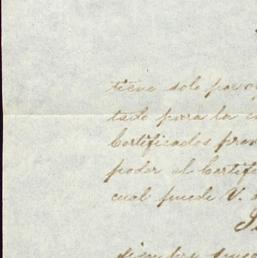 tiene solo por o
tado para la c
Certificados pren
poder el Certifi
cual puede V. a
diembre